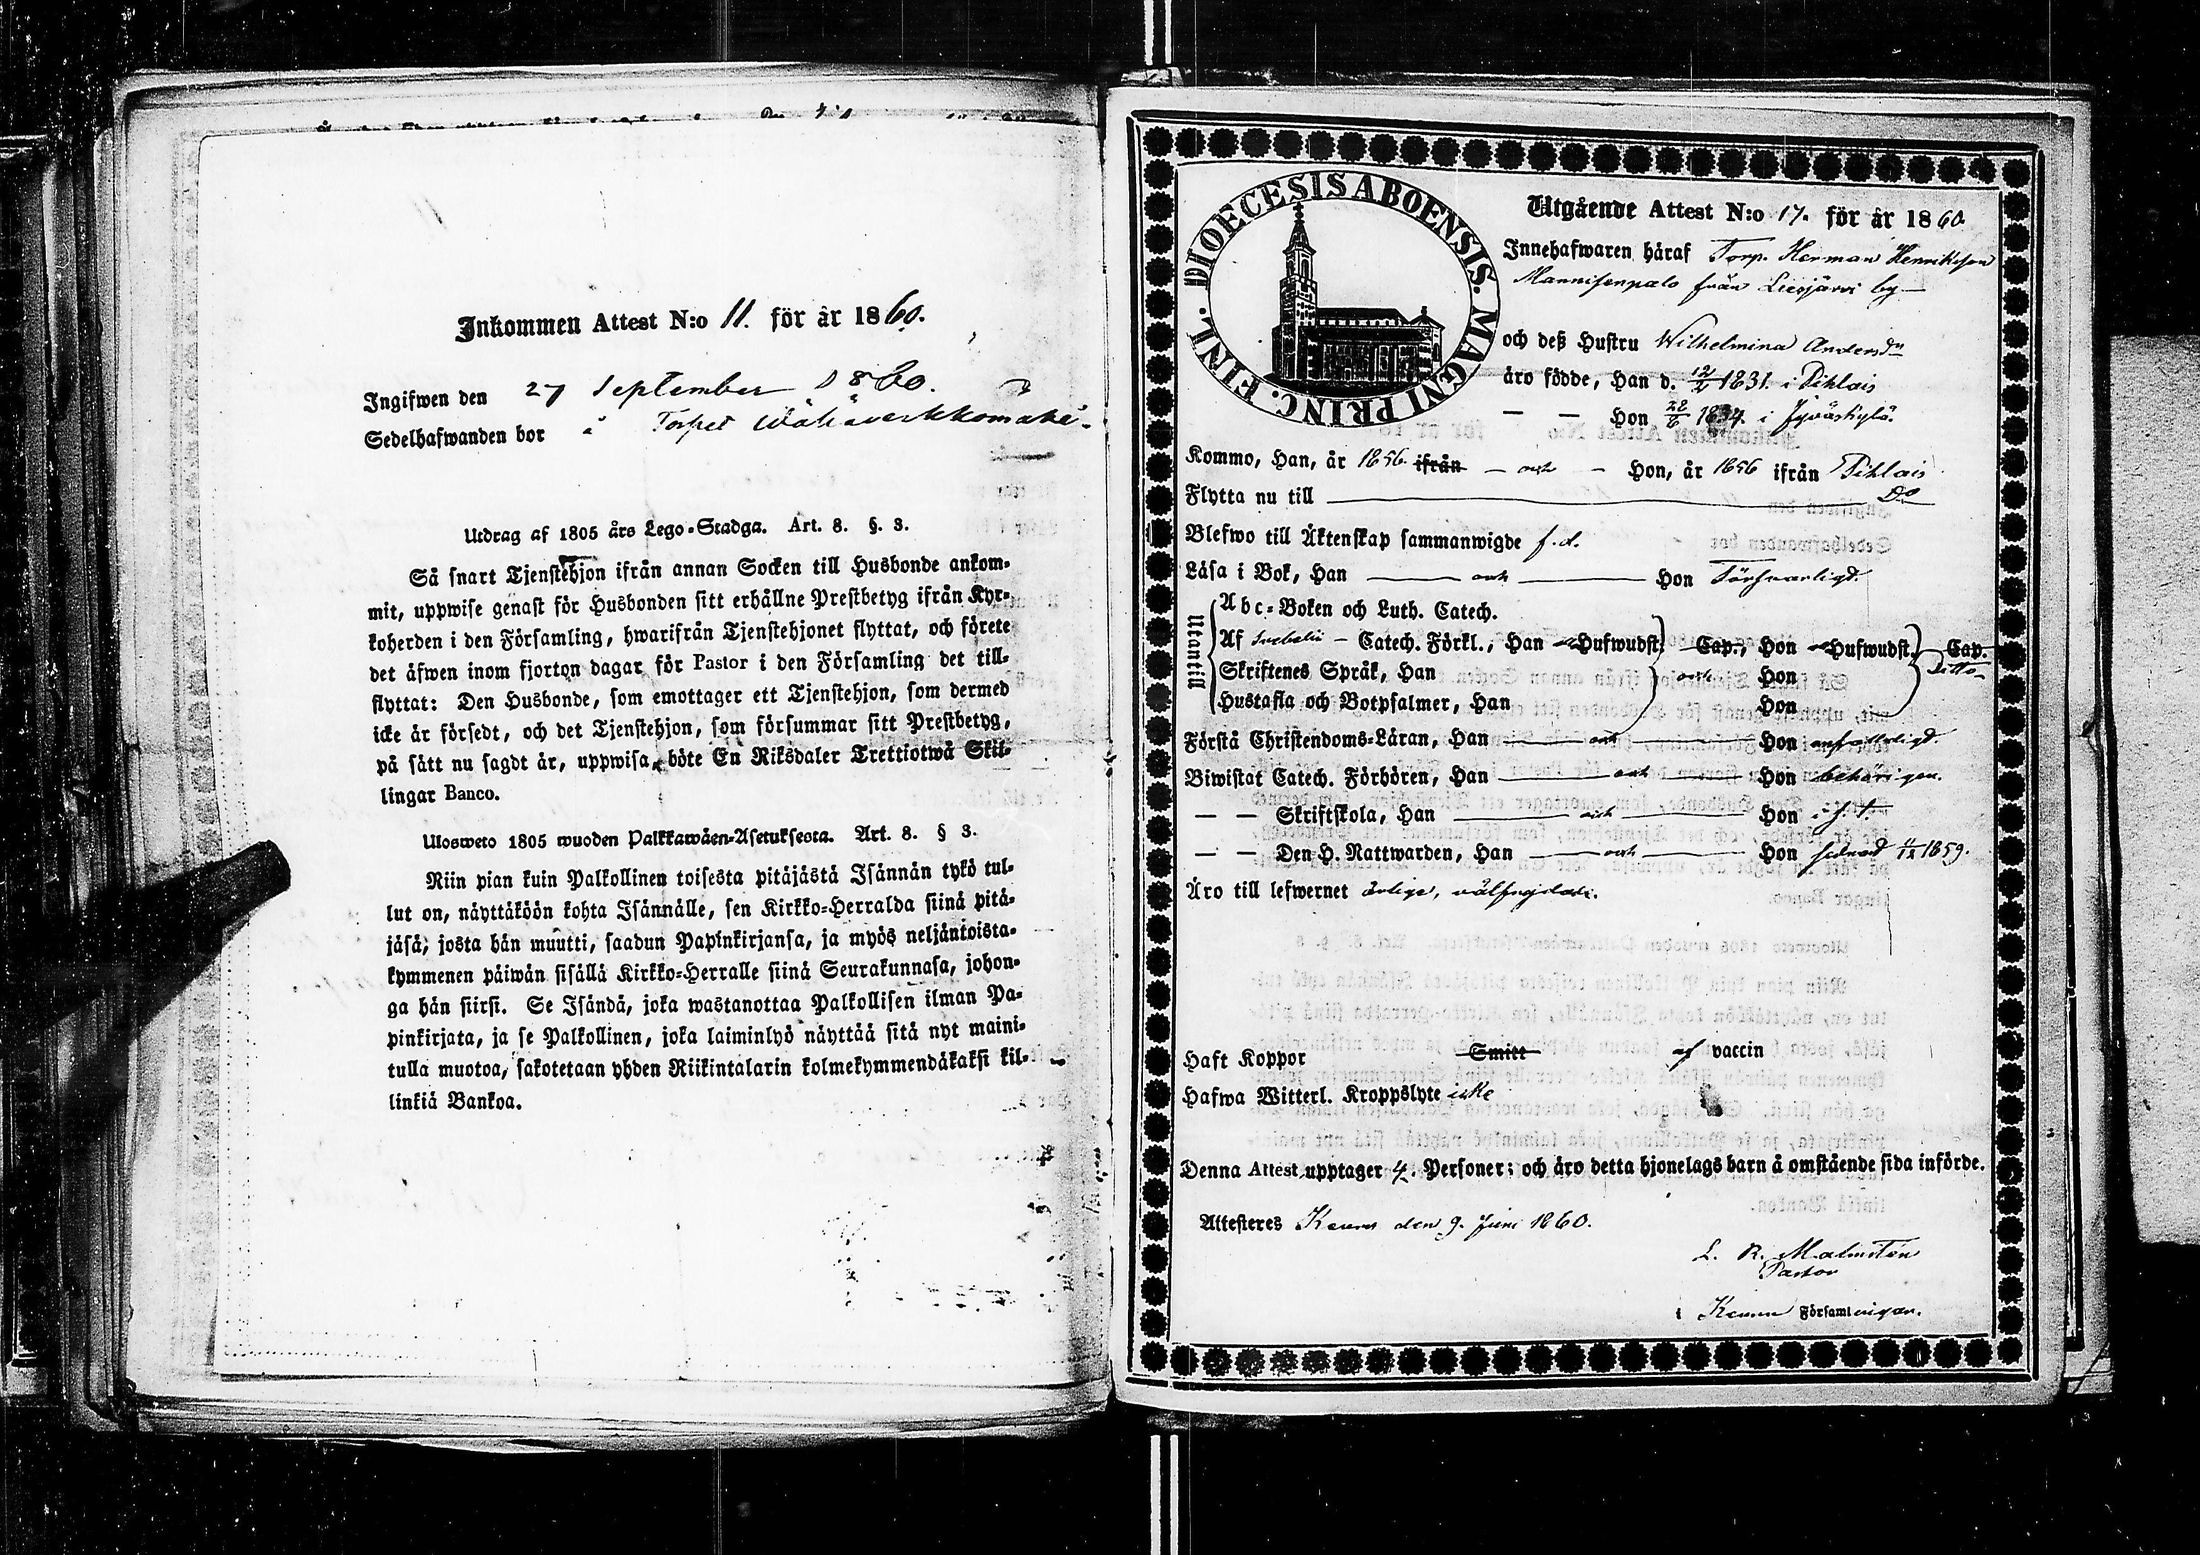 Inkommen Attest N:o 11. för år 1860.
Ingifwen den 27 September 1860.
Sedelhafwanden bor å Torpet
Utdrag af 1805 års Lego-Stadga. Art. 8. §. 3.
Så snart Tjenstehjon ifrån annan Socken till Husbonde ankom-
mit, uppwise genast för Husbonden sitt erhållne Prestbetyg ifrån Kyr-
koherden i den Församling, hwarifrån Tjenstehjonet flyttat, och förete
det äfwen inom fjorton dagar för Pastor i den Församling det till-
flyttat: Den Husbonde, som emottager ett Tjenstehjon, som dermed
icke är försedt, och det Tjenstehjon, som försummar sitt Prestbetyg,
på sätt nu sagdt är, uppwisa, böte En Riksdaler Trettiotwå Skil-
lingar Banco.
Ulosweto 1805 wuoden Palkkawäen-Asetuksesta. Art. 8. § 3.
Niin pian kuin Palkollinen toisesta pitäjästä Isännän tykö tul-
lut on, näyttäköön kohta Isännälle, sen Kirkko-Herralda siinä pitä-
jäsä, josta hän muutti, saadun Papinkirjansa, ja myös neljäntoista-
kymmenen päiwän sisällä Kirkko-Herralle siinä Seurakunnasa, johon-
ga hän siirsi. Se Isändä, joka wastanottaa Palkollisen ilman Pa-
pinkirjata, ja se Palkollinen, joka laiminlyö näyttää sitä nyt maini-
tulla muotoa, sakotetaan yhden Riikintalarin kolmekymmendäkaksi kil-
linkiä Bankoa.
DIOECESIS ABOENSIS. MAGNI PRINC. FINL.
Utgående Attest N:o 17. för år 1860
Innehafwaren häraf Torp. Herman Henriksson
Mannisenpalo från Liesjärvi by
och deß Hustru Wilhelmina Andersdr
äro födde, Han d. 12/ 1831. i Pihlais
— — Hon 28/6 18 i Jyväskylä.
Kommo, Han, år 1856. ifrån — och — Hon, år 1856 ifrån Pihlais
Flytta nu till Do
Blefwo till Äktenskap sammanwigde f.d.
Läsa i Bok, Han — och — Hon Försvarligt.
Utantill
Abc-Boken och Luth. Catech.
Af Svebelii — Catech. Förkl., Han Hufwudst. Cap., Hon Hufwudst. Cap.
Skriftenes Språk, Han och Hon Ditto
Hustafla och Botpsalmer, Han Hon
Förstå Christendoms-Läran, Han — och — Hon
Biwistat Catech. Förhören, Han — och — Hon behörigen.
— — Skriftskola, Han — och — Hon
— — Den H. Nattwarden, Han — och — Hon sednast 1859.
Äro till lefwernet ärliga, välfrejdade.
Haft Koppor Smitt af vaccin
Hafwa Witterl. Kroppslyte icke
Denna Attest upptager 4. Personer; och äro detta hjonelags barn å omstående sida införde.
Attesteres Keuru den 9. Juni 1860.
L. R. Malmstén
Pastor
i Keuru Församlingen.